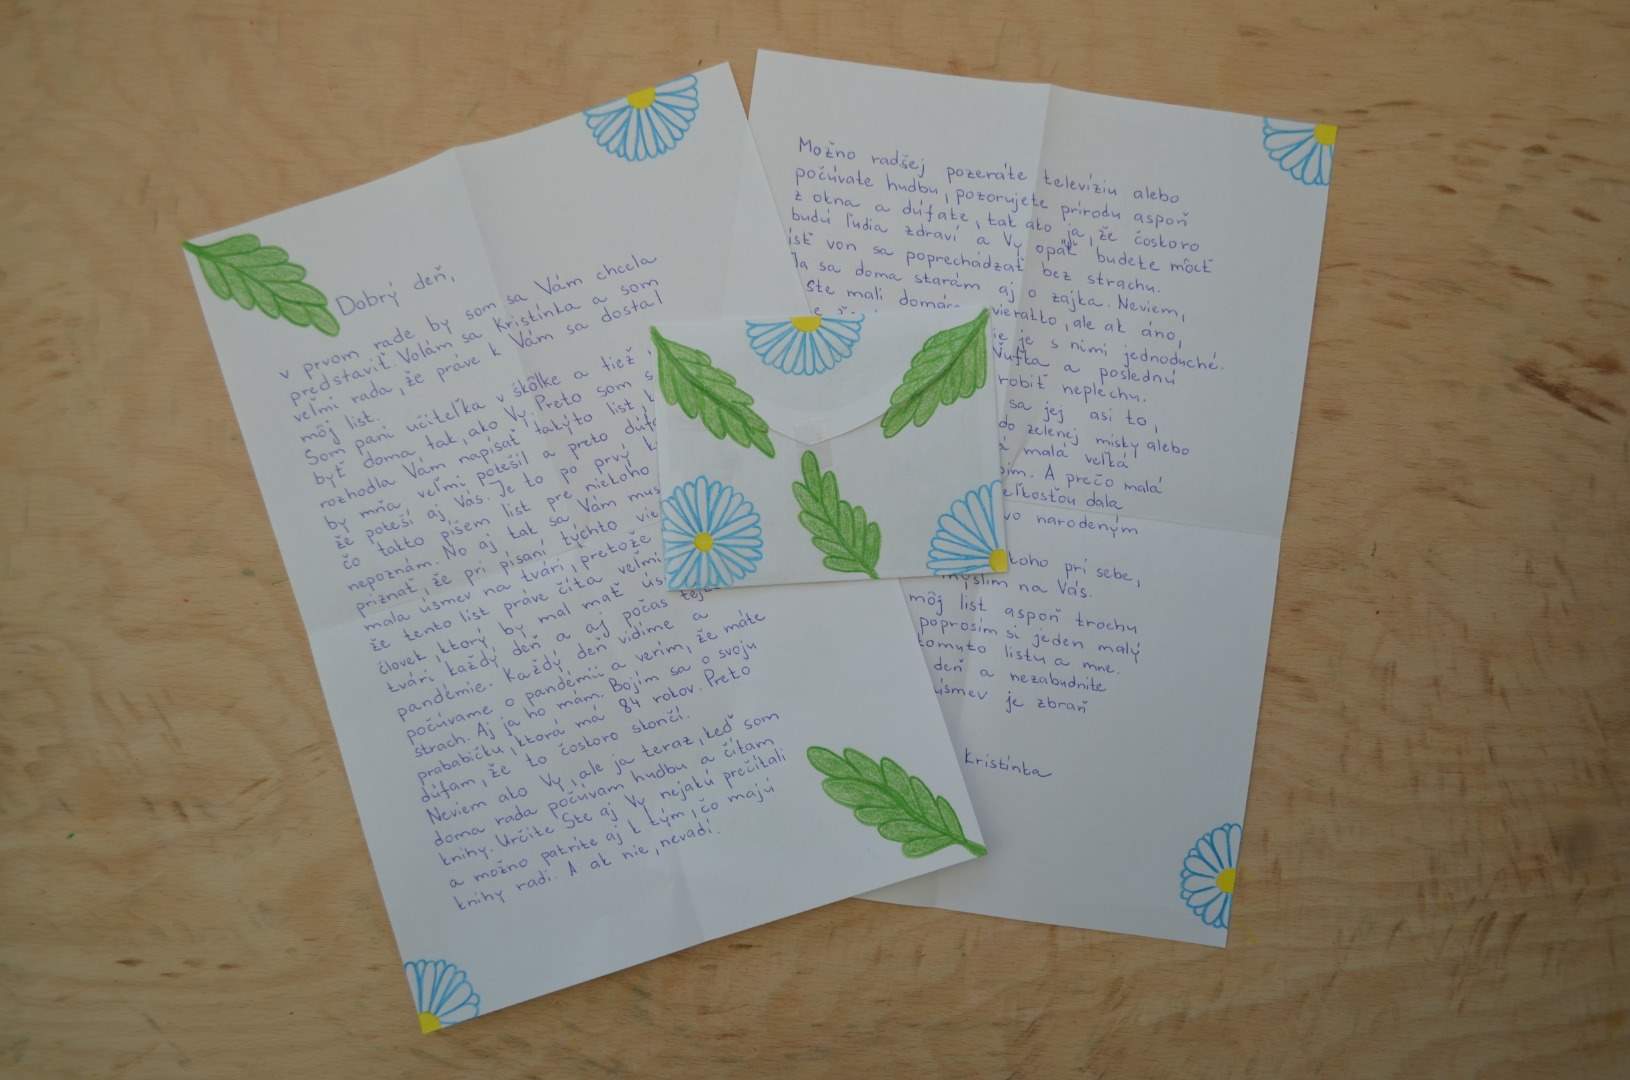 Dobrý deň,
v prvom rade by som sa Vám chcela
predstaviť. Volám sa Kristínka a som
veľmi rada, že práve k Vám sa dostal
môj list.
Som pani učiteľka v škôlke a tiež
byť doma, tak, ako Vy. Preto som
rozhodla Vám napísať takýto list,
by mňa veľmi potešil a preto
že poteší aj Vás. Je to po prvý
čo takto píšem list pre niekoho
nepoznám. No aj tak sa Vám
priznať, že pri písaní týchto
mala úsmev na tvári, pretože
že tento list práve číta veľmi
človek, ktorý by mal mať
tvári každý deň a aj počas
pandémie. Každý deň vidíme a
počúvame o pandémii a verím, že máte
strach. Aj ja ho mám. Bojím sa o svoju
prababičku, ktorá má 84 rokov. Preto
dúfam, že to čoskoro skončí.
Neviem ako Vy, ale ja teraz, keď som
doma rada počúvam hudbu a čítam
knihy. Určite Ste aj Vy nejakú prečítali
a možno patríte aj k tým, čo majú
knihy radi. A ak nie, nevadí.
Možno radšej pozeráte televíziu alebo
počúvate hudbu, pozorujete prírodu aspoň
z okna a dúfate, tak ako ja, že čoskoro
budú ľudia zdraví a Vy opäť budete môcť
ísť von sa poprechádzať bez strachu.
Ja sa doma starám aj o zajka. Neviem,
Ste mali vieratko, ale ak áno,
je s nimi jednoduché.
Ňufka a poslednú
robiť neplechu.
sa jej asi to,
do zelenej misky alebo
malá veľká
A prečo malá
dala
narodeným
pri sebe,
myslím na Vás.
môj list aspoň trochu
poprosím si jeden malý
tomuto listu a mne.
deň a nezabudnite
úsmev je zbraň
Kristínka